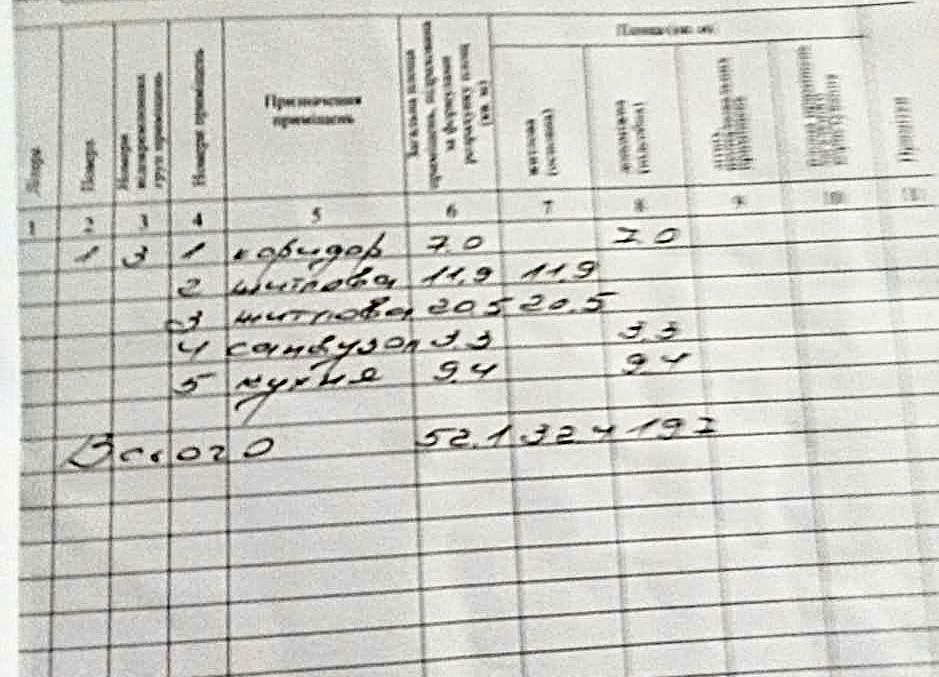 Площа (кв. м)
Літера
Поверх
Номери відокремлених груп приміщень
Номери приміщень
Призначення приміщень
Загальна площа приміщень, підрахована за формулами розрахунку площ (кв. м)
житлова (основна)
допоміжна (підсобна)
Примітки
1 2 3 4 5 6 7 8 9 10 11
1 3 1 коридор 7.0 7.0
2 житлова 11,9 11,9
3 житлова 20 5 20.5
4 санвузол 3.3 3.3
5 кухня 9.4 9.4
Всього 52.1 32.4 19 7